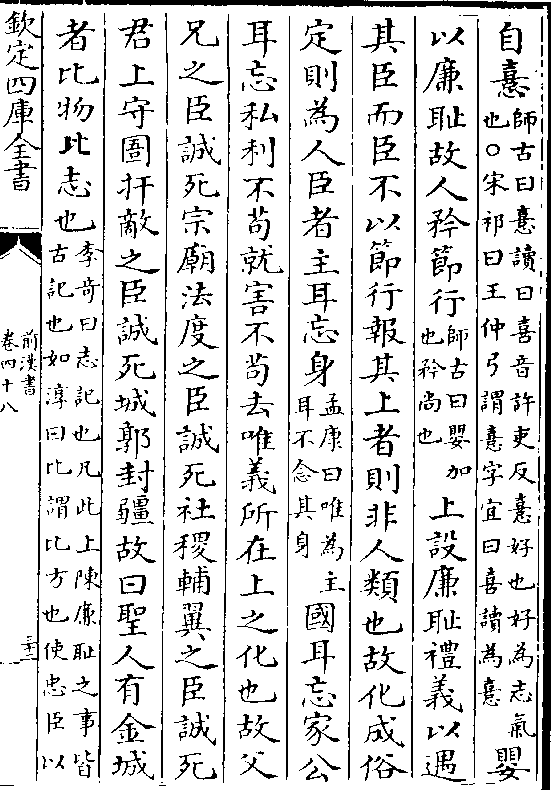 自憙師古曰憙讀曰喜音許吏反憙好也好為志氣也○宋祁曰王仲弓謂憙字宜曰喜讀為憙嬰
以廉恥故人矜節行師古曰嬰加也矜尚也上設廉恥禮義以遇
其臣而臣不以節行報其上者則非人類也故化成俗
定則為人臣者主耳忘身孟康曰唯為主耳不念其身國耳忘家公
耳忘私利不苟就害不苟去唯義所在上之化也故父
兄之臣誠死宗廟法度之臣誠死社稷輔翼之臣誠死
君上守圄扞敵之臣誠死城郭封疆故曰聖人有金城
者比物比志也李奇曰志記也凡此上陳廉恥之事皆古記也如淳曰比謂比方也使忠臣以
欽定四庫全書
前漢書
卷四十八